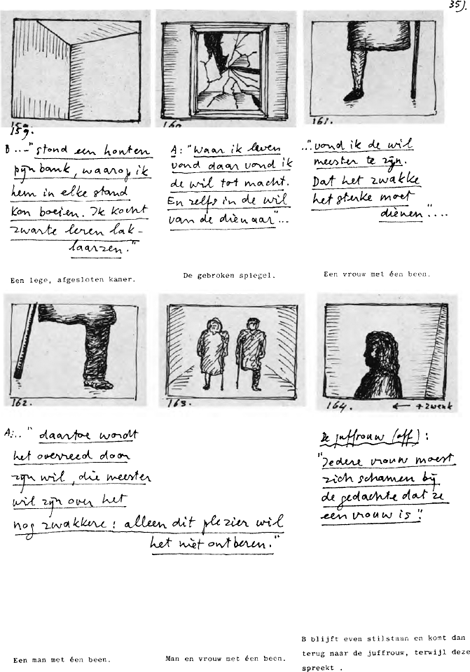 35).
159.
160
161.
B...-"stond een houten
pijnbank, waarop ik
hem in elke stand
kon boeien. Ik kocht
zwarte leren lak-
laarzen."
Een lege, afgesloten kamer.
A: "Waar ik leven
vond daar vond ik
de wil tot macht.
En zelfs in de wil
van de dienaar"...
De gebroken spiegel.
..."vond ik de wil
meester te zijn.
Dat het zwakke
het sterke moet
dienen"....
Een vrouw met één been.
162.
163.
164.
← + zwenk
A:.." daartoe wordt
het overreed door
zijn wil, die meester
wil zijn over het
nog zwakkere: alleen dit plezier wil
het niet ontberen."
Een man met één been.
Man en vrouw met één been.
De juffrouw (off):
"Iedere vrouw moest
zich schamen bij
de gedachte dat ze
een vrouw is".
B blijft even stilstaan en komt dan
terug naar de juffrouw, terwijl deze
spreekt .